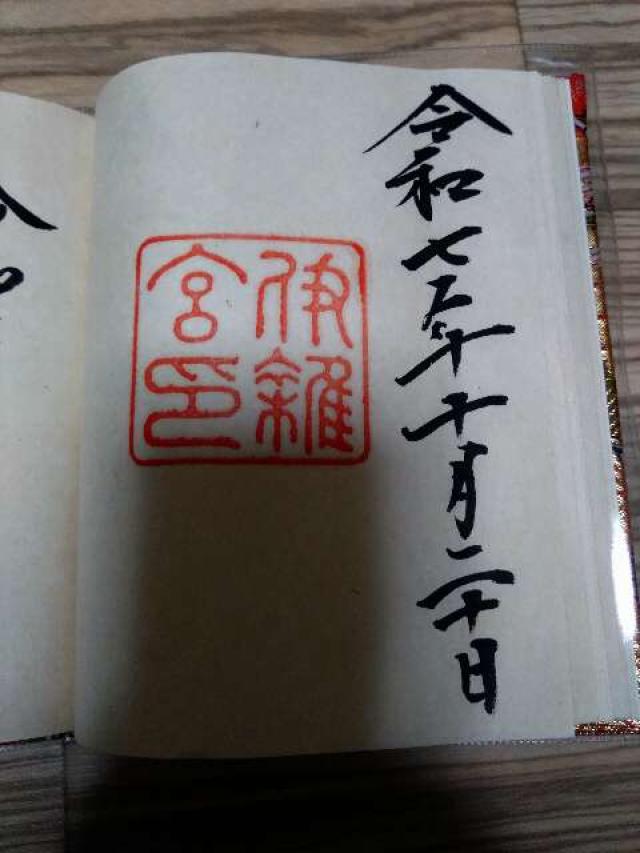 令和七年十月二十日
伊雜
宮印
令